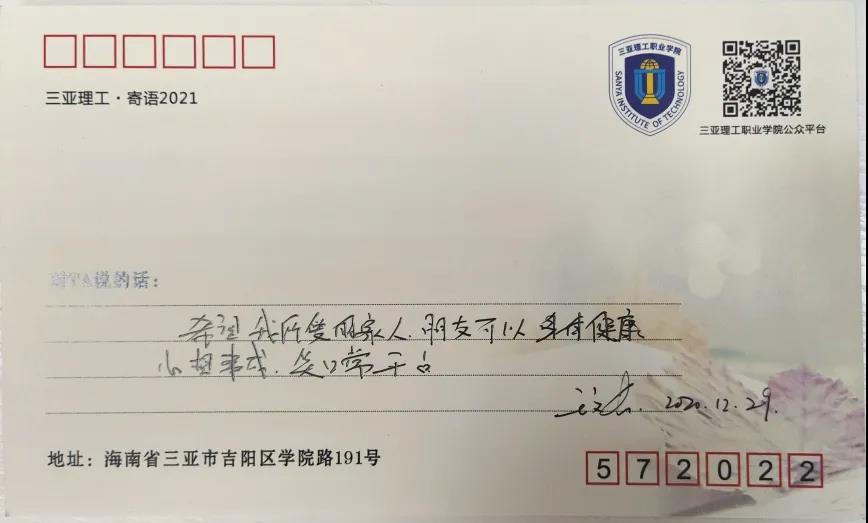 三亚理工·寄语2021
三亚理工职业学院
SANYA INSTITUTE OF TECHNOLOGY
三亚理工职业学院公众平台
对TA说的话：
希望我所爱的家人、朋友可以身体健康
心想事成、笑口常开
2020.12.29.
地址：海南省三亚市吉阳区学院路191号
572022